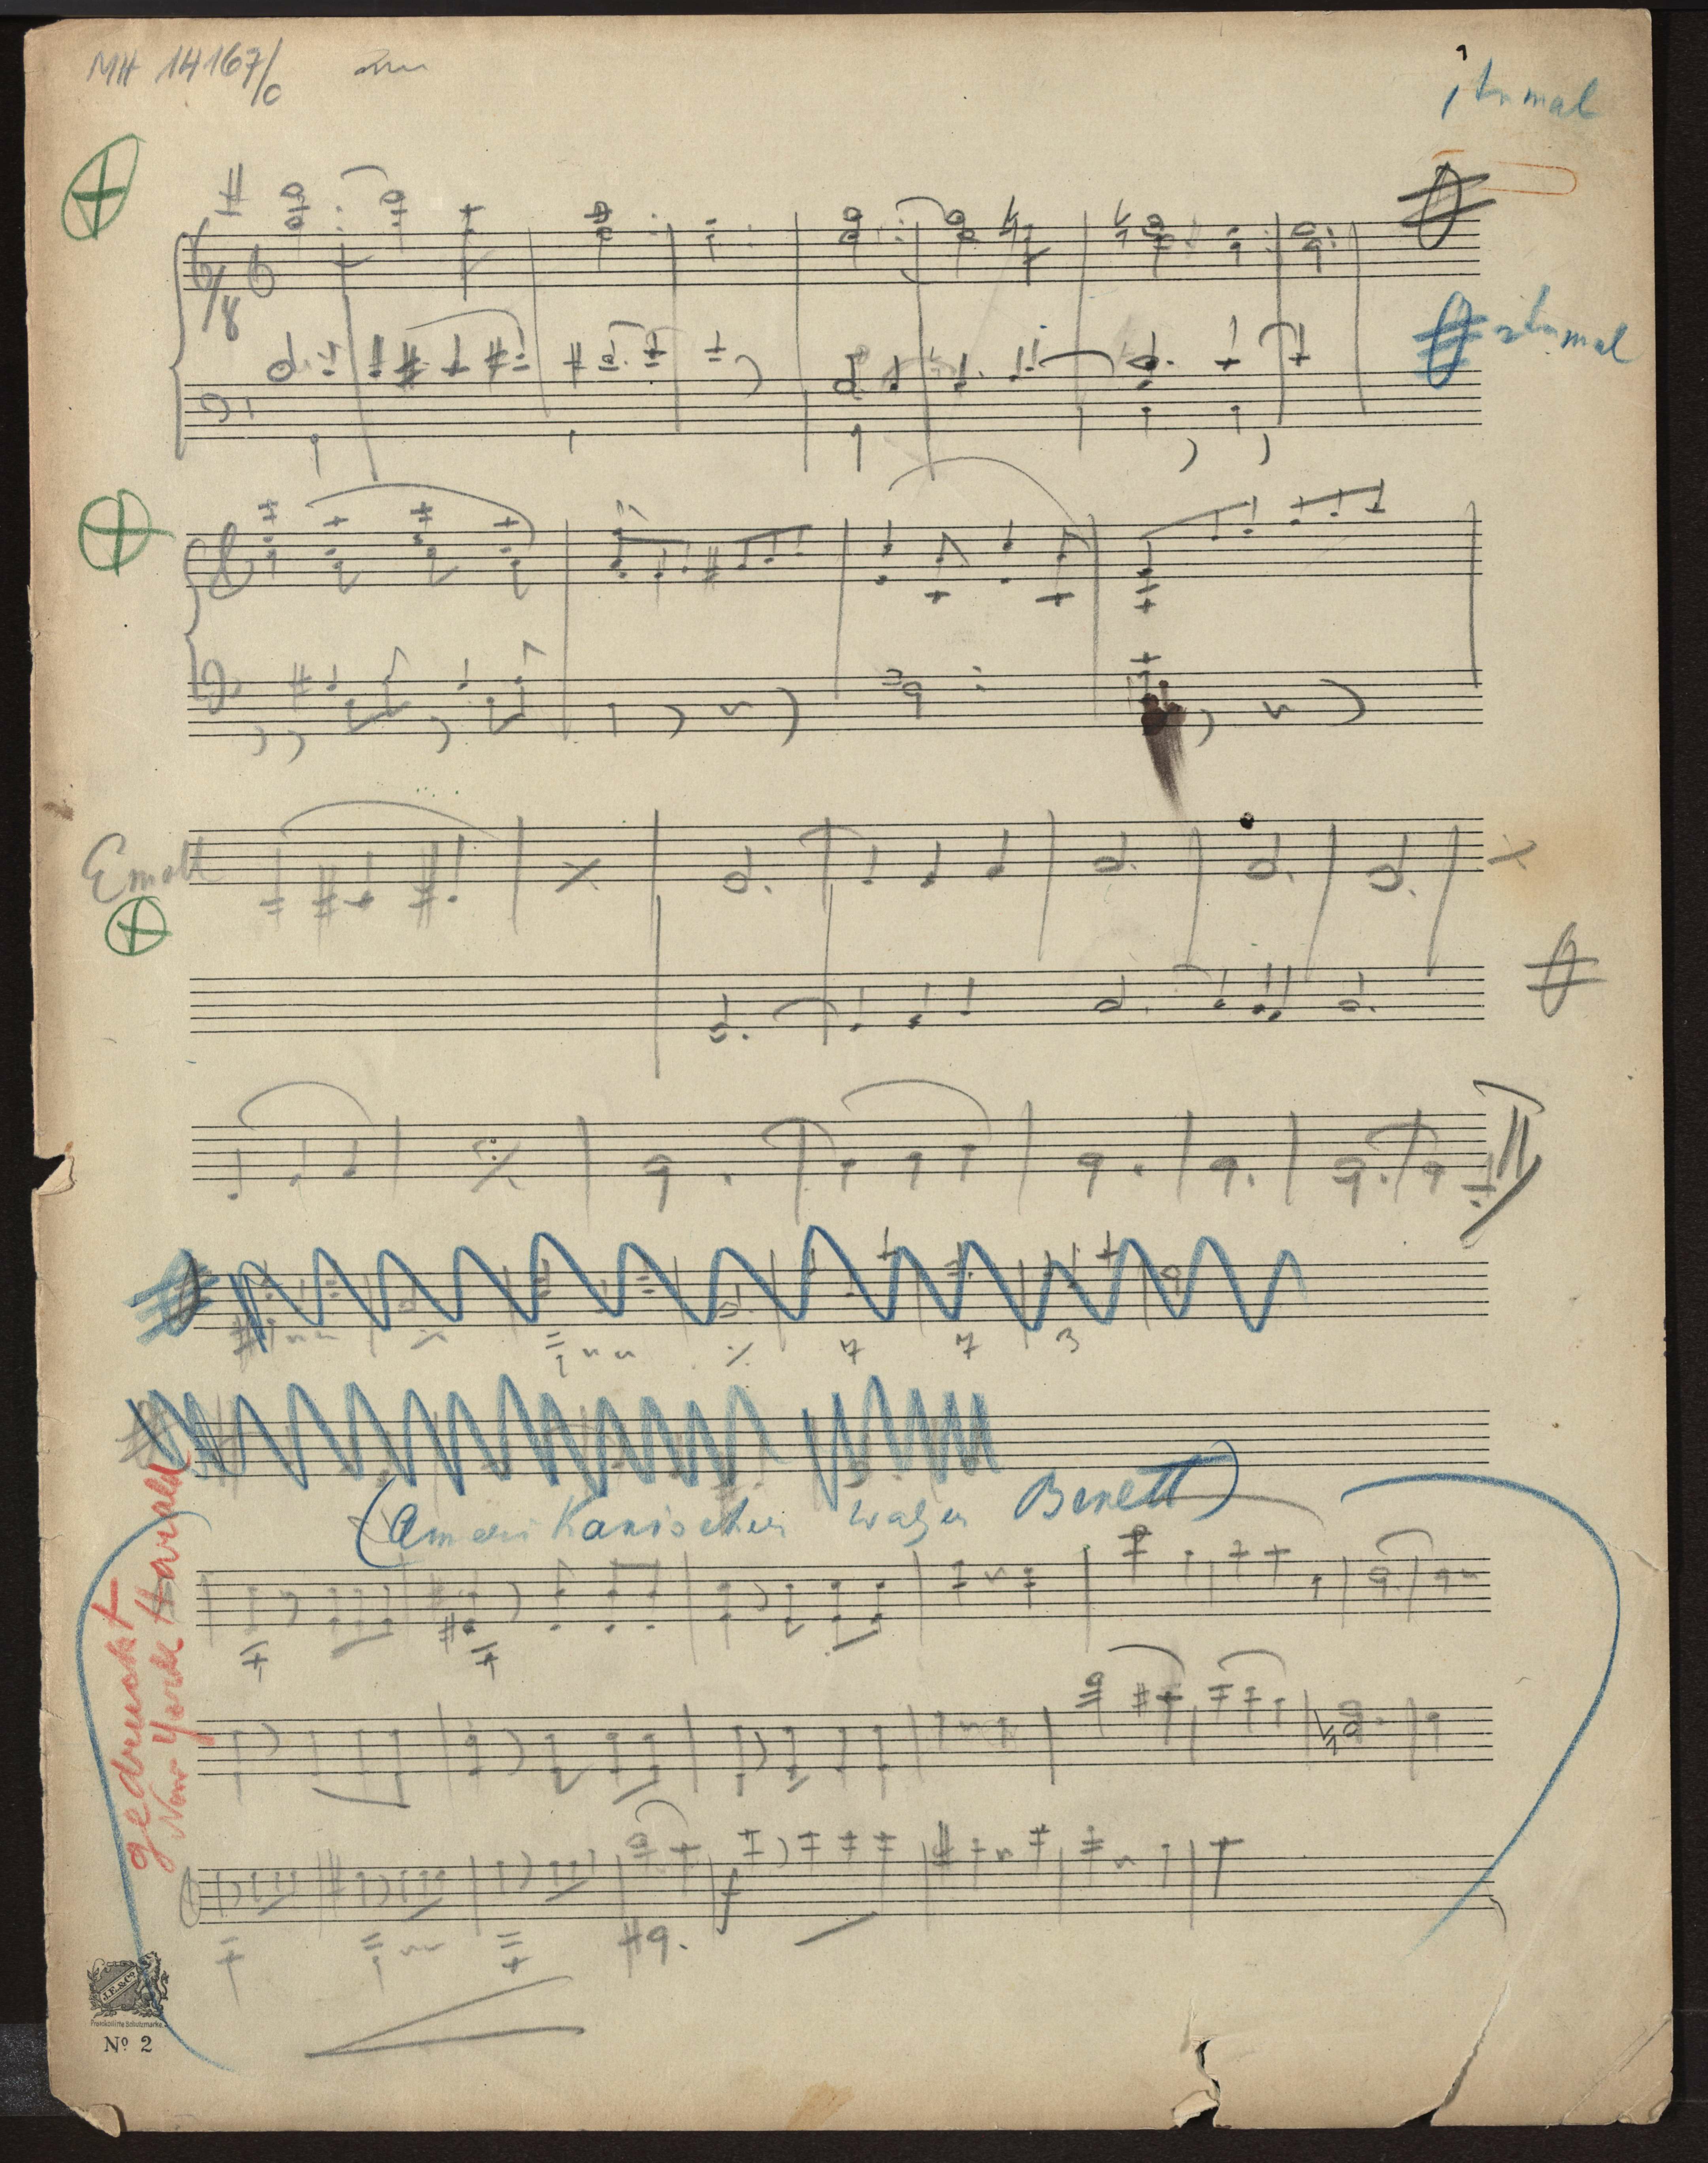 MH 14167/c
1 tn mal
6/8
2 tn mal
E moll
7 7 3
(Amerikanischer Walzer Benett)
gedruckt
New York Herald
J.E. & Co.
Protokollirte Schutzmarke.
No. 2